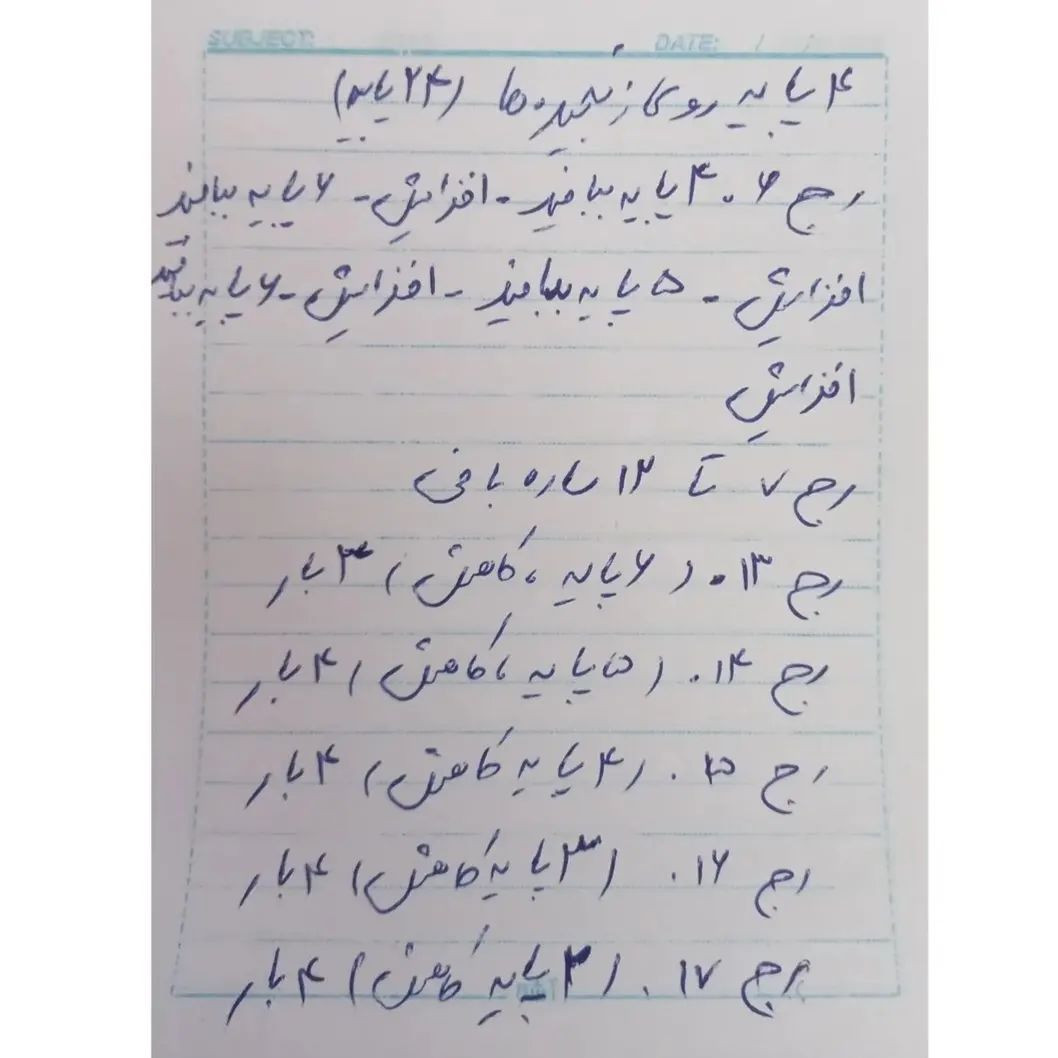 SUBJECT: DATE: / /
۴ پایه روی زنجیره ها (۲۴ پایه)
رج ۶. ۴ پایه ببافید - افزایش - ۶ پایه ببافید
افزایش - ۵ پایه ببافید - افزایش - ۶ پایه ببافید
افزایش
رج ۷ تا ۱۲ ساده بافی
رج ۱۳. (۶ پایه، کاهش) ۴ بار
رج ۱۴. (۵ پایه، کاهش) ۴ بار
رج ۱۵. (۴ پایه کاهش) ۴ بار
رج ۱۶. (۳ پایه کاهش) ۴ بار
رج ۱۷. (۲ پایه کاهش) ۴ بار